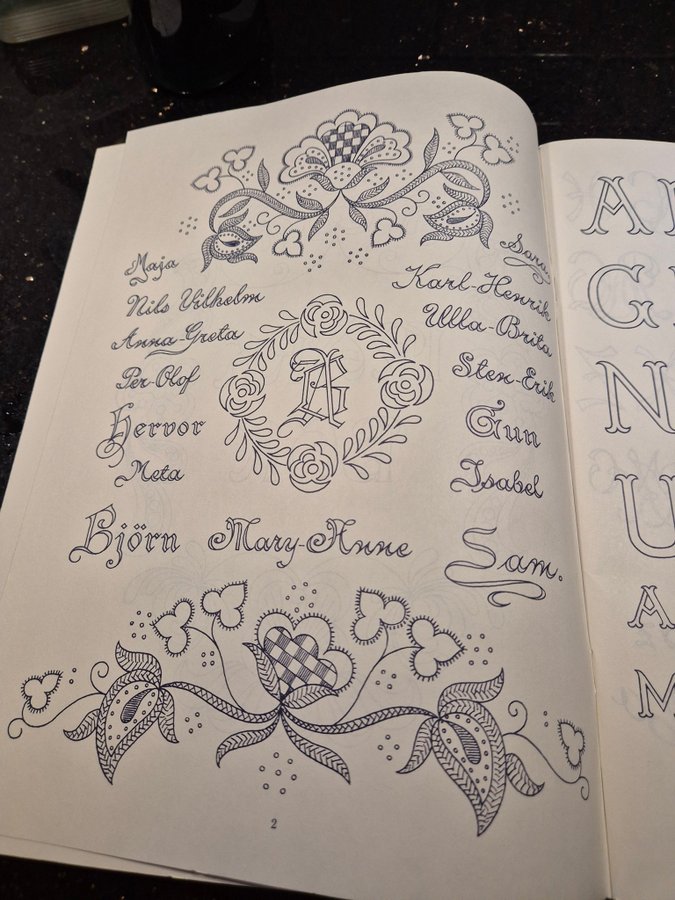 Maja
Nils Vilhelm
Anna-Greta
Per-Olof
Hervor
Meta
Björn
Mary-Anne
Sara
Karl-Henrik
Ulla-Brita
Sten-Erik
Gun
Isabel
Sam.
2
A
G
N
U
A
M